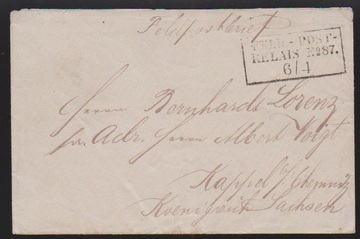 Feldpostbrief
FELD-POST-
RELAIS No 87.
6/4
Herrn Bernhardt Lorenz
pr. Adr. Herrn Albert Voigt
Kappel b/Chemnitz
Koenigreich Sachsen